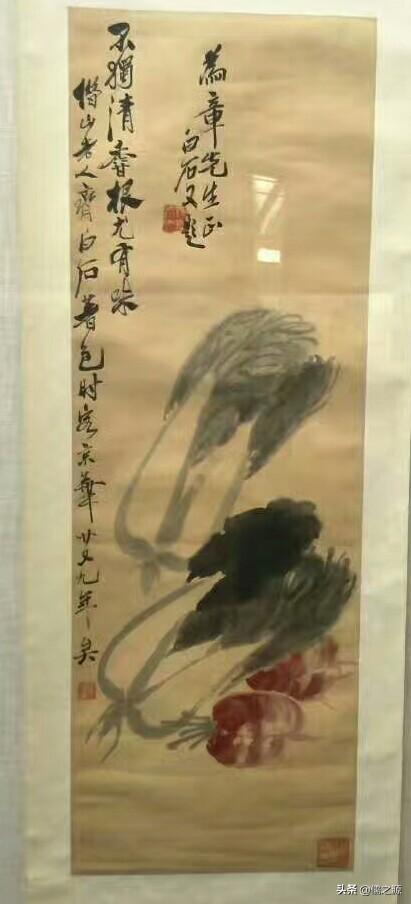 為章先生正
白石又題
不獨清香根尤有味
借山老人齊白石著色時客京華廿又九年矣
头条 @儒之